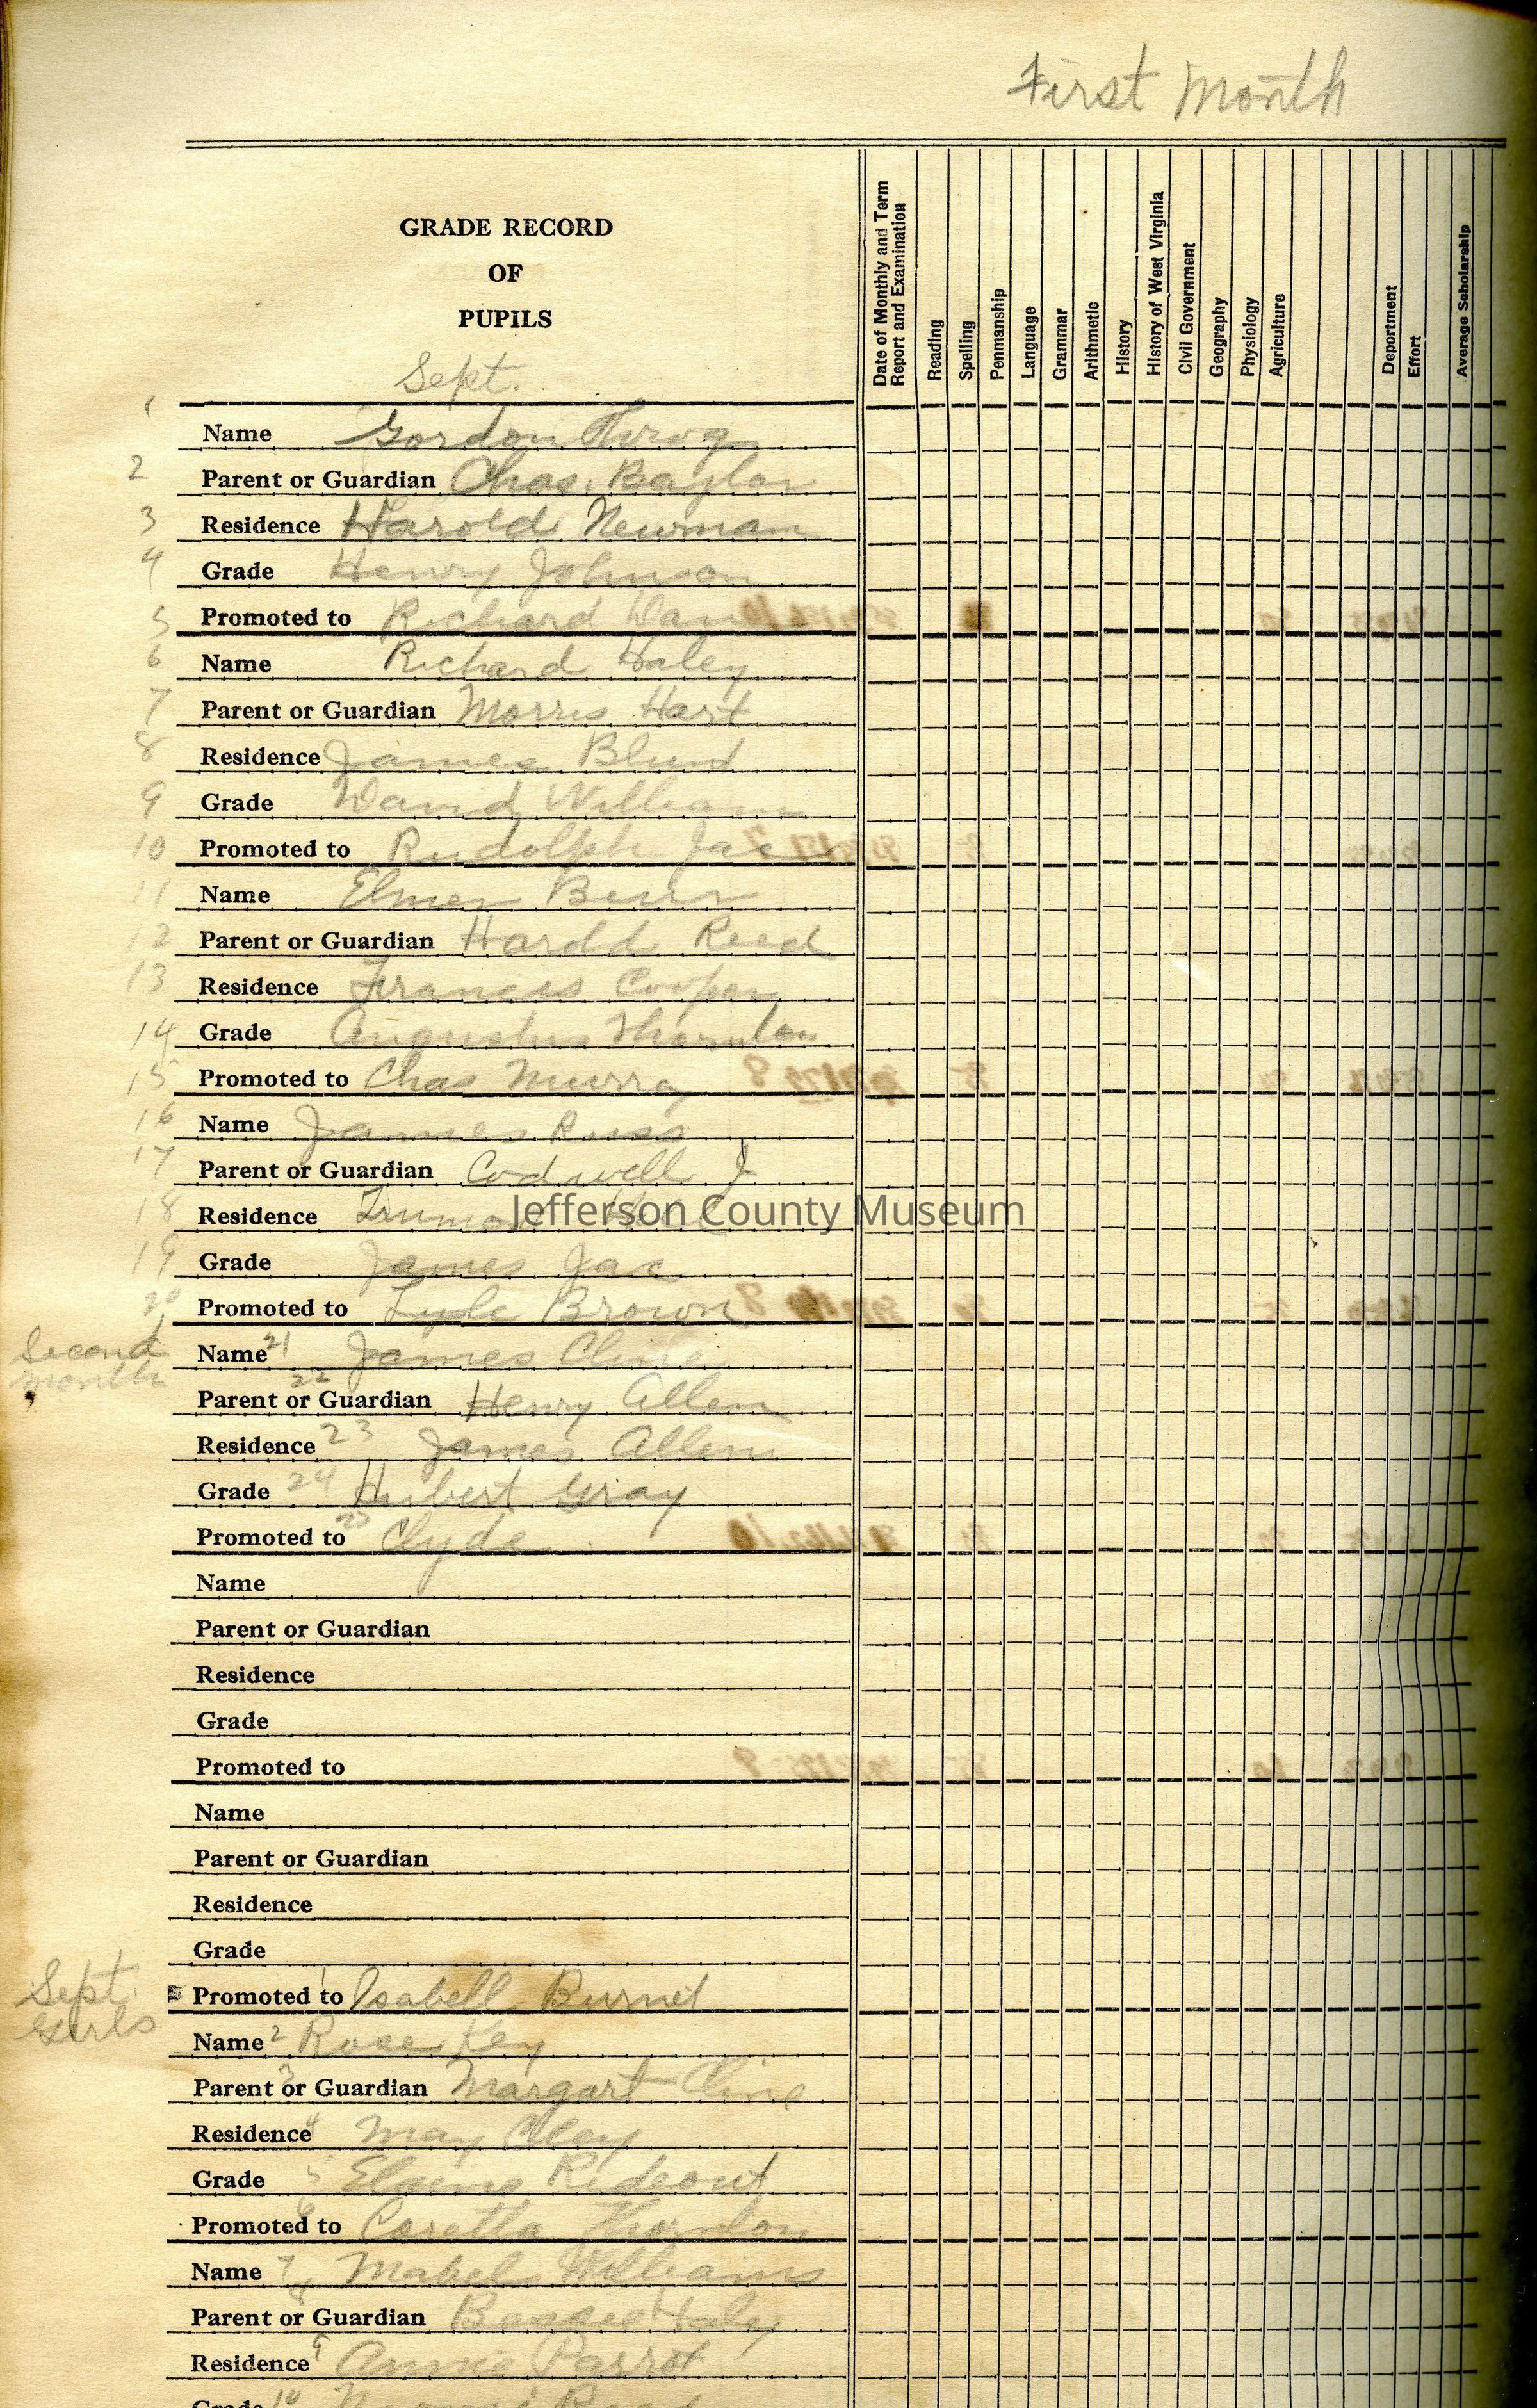 First Month
GRADE RECORD
OF
PUPILS
Sept.
Date of Monthly and Term Report and Examination
Reading
Spelling
Penmanship
Language
Grammar
Arithmetic
History
History of West Virginia
Civil Government
Geography
Physiology
Agriculture
Deportment
Effort
Average Scholarship
1 Name Gordon
2 Parent or Guardian Chas. Baylor
3 Residence Harold Newman
4 Grade Henry Johnson
5 Promoted to Richard
6 Name Richard Haley
7 Parent or Guardian Morris Hart
8 Residence James
9 Grade David William
10 Promoted to Rudolph Jac
11 Name Elmer
12 Parent or Guardian Harold Reed
13 Residence Francis Cooper
14 Grade Augustus Thornton
15 Promoted to Chas Murray
16 Name James Russ
17 Parent or Guardian Codwell J
18 Residence Truman
Jefferson County Museum
19 Grade James Jac
20 Promoted to Lyle Brown
Second month
Name 21 James Cline
22
Parent or Guardian Henry Allen
Residence 23 James Allen
Grade 24 Hubert Gray
Promoted to 25 Clyde
Name
Parent or Guardian
Residence
Grade
Promoted to
Name
Parent or Guardian
Residence
Grade
Sept. Girls
Promoted to 1 Isabell Burnet
Name 2 Rose Key
Parent or Guardian 3 Margart Cline
Residence 4 May Cley
Grade 5 Elaine Rideout
Promoted to 6 Coretta Thornton
Name 7 Mabel Williams
Parent or Guardian 8 Bessie Haley
Residence 9 Annie Parrot
Grade 10